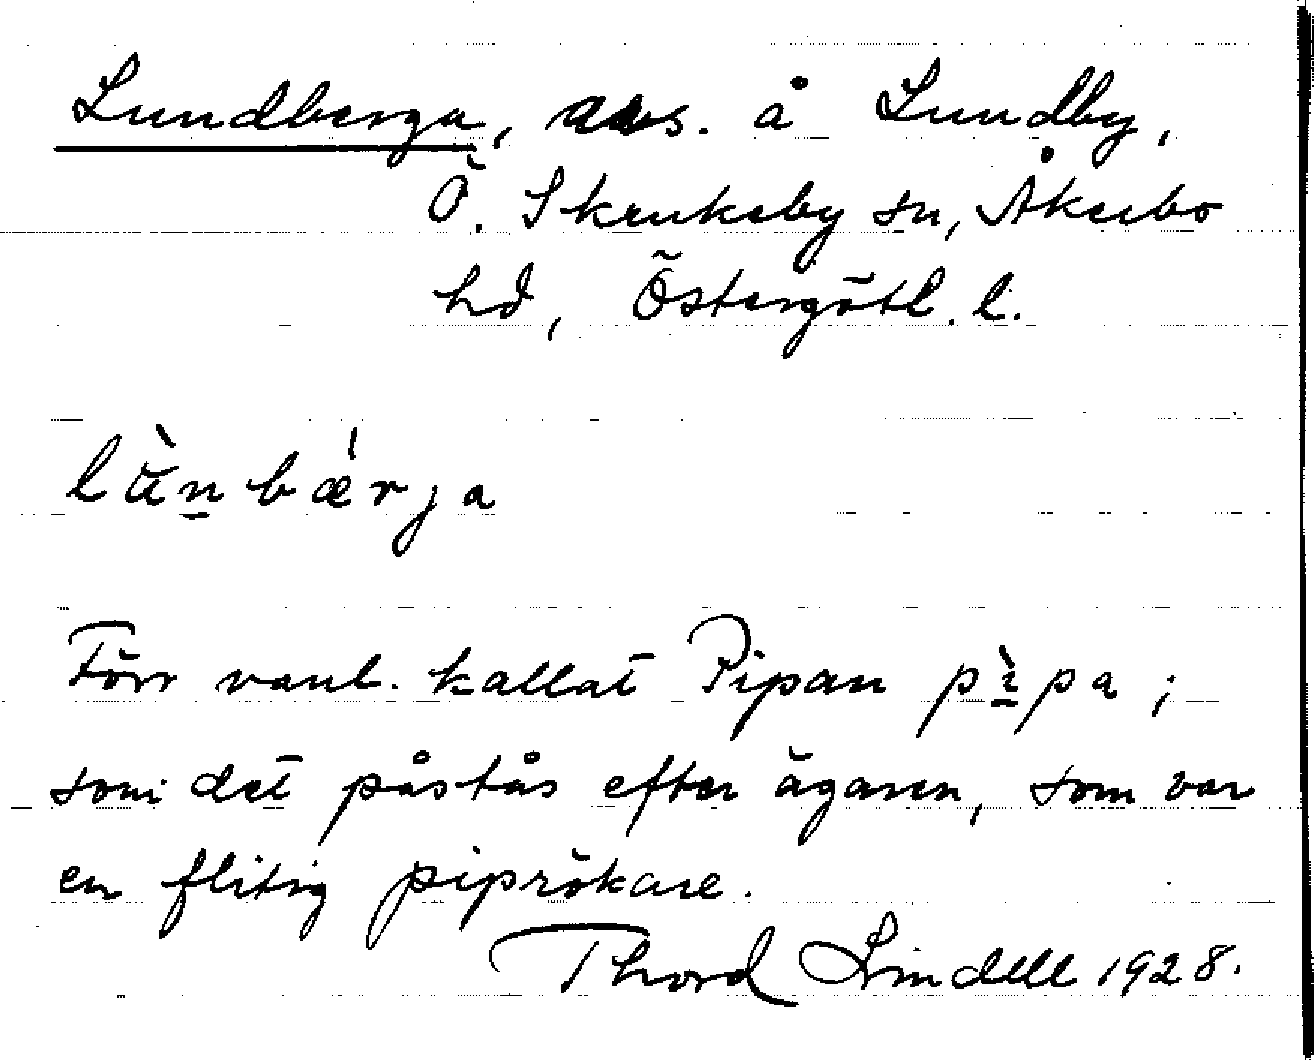 Lundberga, avs. å Lundby,
Ö. Skrukeby sn, Åkerbo
hd, Östergötl. l.
lùn bǽrja
Förr vanl. kallat Pipan pìpa;
som det påstås efter ägaren, som var
en flitig piprökare.
Thord Lindell 1928.